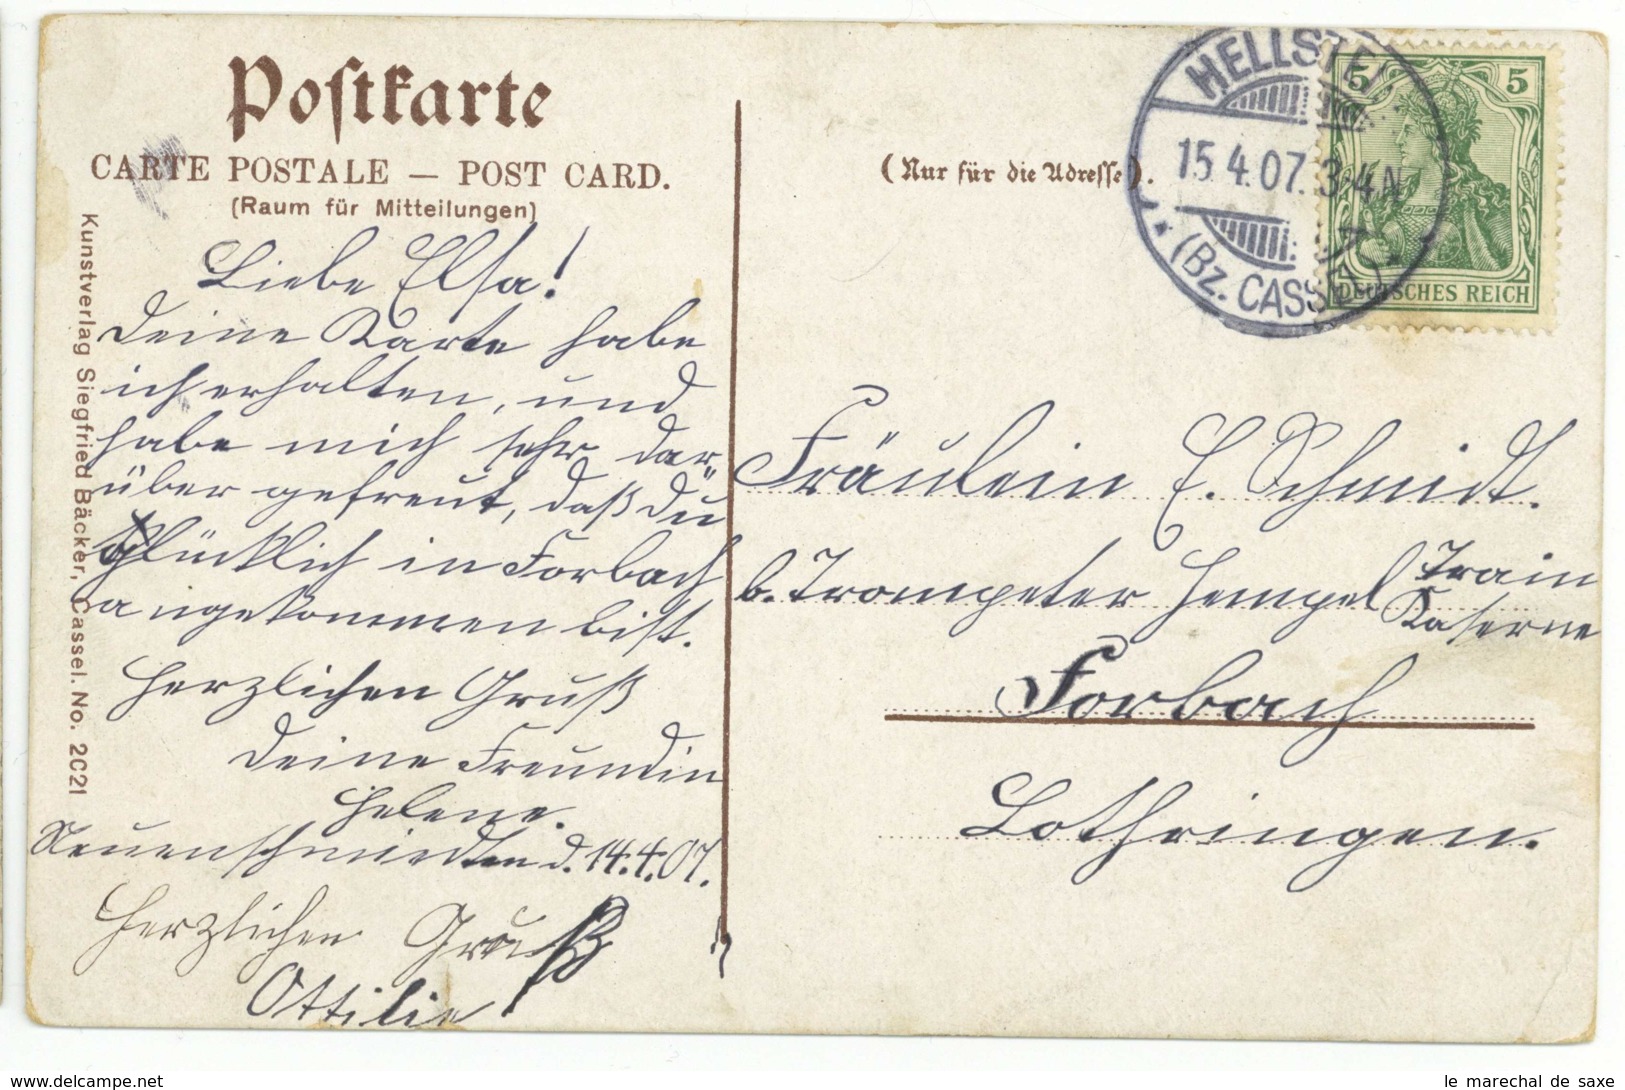 Postkarte
CARTE POSTALE — POST CARD.
(Raum für Mitteilungen)
Liebe Elsa!
Deine Karte habe
ich erhalten, und
habe mich sehr dar„
über gefreut, daß du
Glücklich in Forbach
angekommen bist.
Herzlichen Gruß
Deine Freundin
Helene.
Neuenschmidten d. 14.4.07.
Herzlichen Gruß
Ottilie
Kunstverlag Siegfried Bäcker, Cassel. No. 2021
(Nur für die Adresse).
HELLSTEI
15.4.07. 3-4N
(Bz. CASSEL)
5 5
DEUTSCHES REICH
Fräulein E. Schmidt.
b. Trompeter Hempel Train
Kaserne
Forbach
Lothringen.
le marechal de saxe
delcampe.net